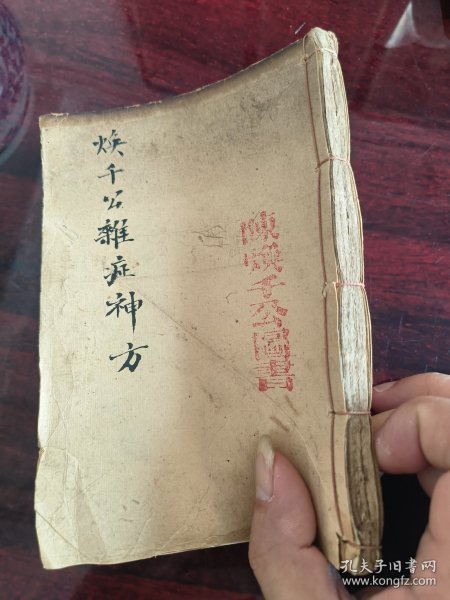 焕千公雜症神方
陳煥千公圖書
孔夫子旧书网
www.kongfz.com